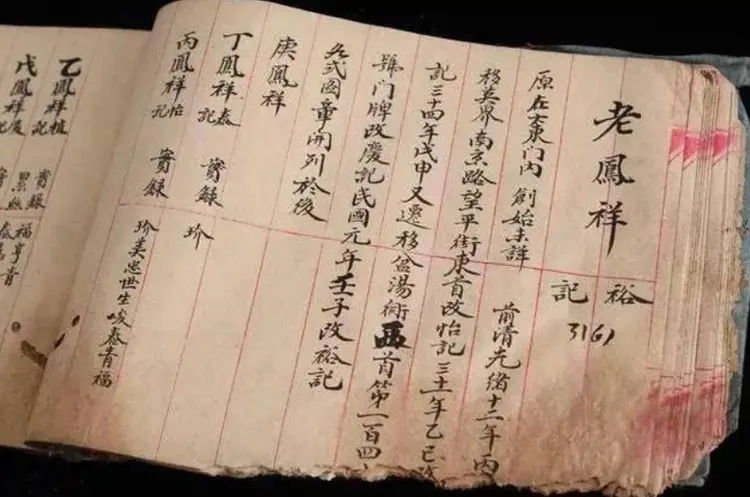 老鳳祥
裕記
3161
原在大東门内 創始未詳 前清光緒十二年丙
移英界南京路望平街東首改怡記三十一年乙巳改
記三十四年戊申又遷移盆湯衖西首第一百四
號门牌改慶記民國元年壬子改裕記
式國章開列於後
庚鳳祥
丁鳳祥泰記 實録 珍
丙鳳祥怡記 實録 珍美忠世生峻泰青福
乙鳳祥植記 實録 福亨青
戊鳳祥慶記 累絲